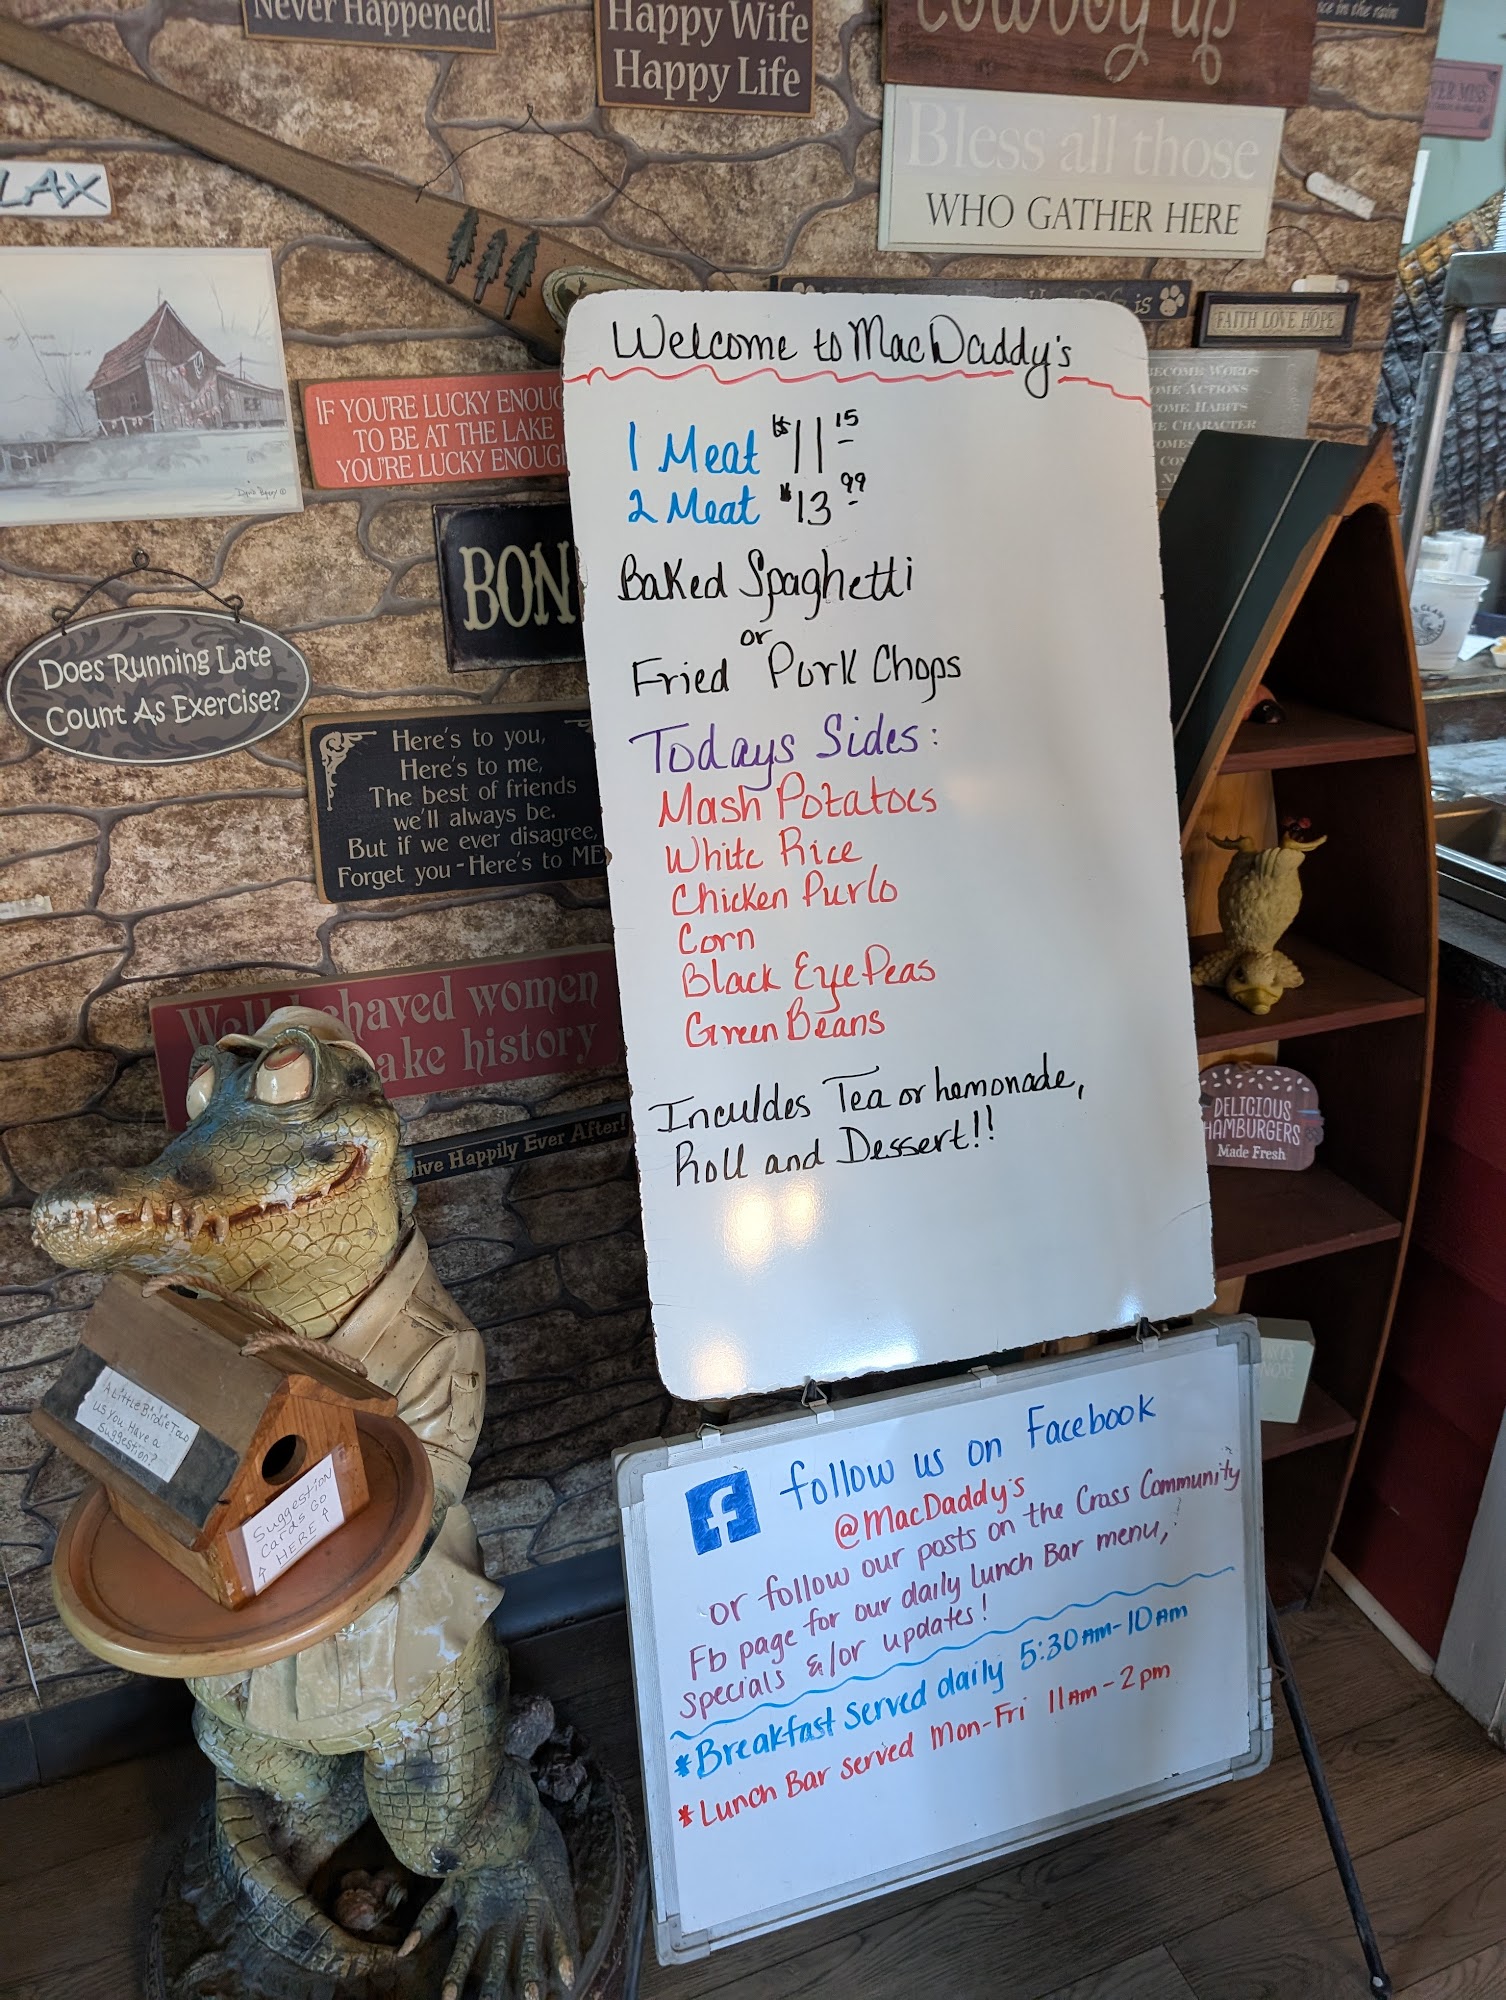 Never Happened!
Happy Wife
Happy Life
Cowboy up
Bless all those
WHO GATHER HERE
LAX
FAITH LOVE HOPE
IF YOU'RE LUCKY ENOUG
TO BE AT THE LAKE
YOU'RE LUCKY ENOUG
BON
Does Running Late
Count As Exercise?
Here's to you,
Here's to me,
The best of friends
we'll always be.
But if we ever disagree,
Forget you - Here's to ME
women
make history
live Happily Ever After!
Welcome to MacDaddy's
1 Meat $11.15
2 Meat $13.99
Baked Spaghetti
or
Fried Pork Chops
Todays Sides:
Mash Potatoes
White Rice
Chicken Purlo
Corn
Black Eye Peas
Green Beans
Inculdes Tea or hemonade,
Roll and Dessert!!
ECOME WORDS
OME ACTIONS
OME HABITS
E CHARACTER
DELICIOUS
HAMBURGERS
Made Fresh
A Little Birdie Told
us you Have a
Suggestion?
Suggestion
Cards Go
HERE
f follow us on Facebook
@MacDaddy's
or follow our posts on the Cross Community
Fb page for our daily lunch Bar menu,
specials &/or updates!
*Breakfast served daily 5:30AM-10AM
*Lunch Bar served Mon-Fri 11AM-2pm